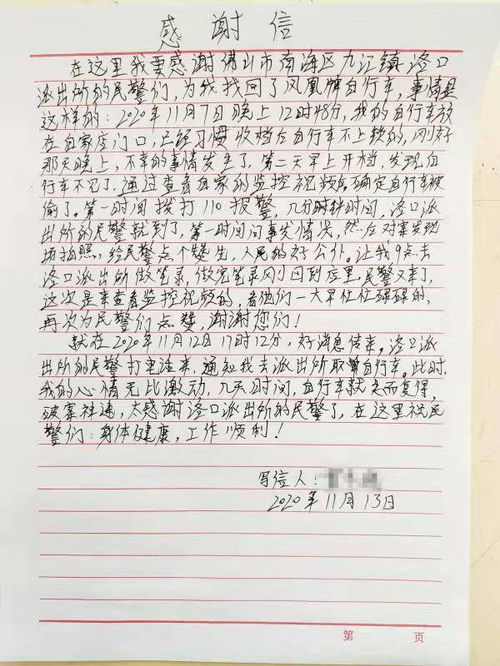 感谢信
在这里我要感谢佛山市南海区九江镇洛口
派出所的民警们,为我找回了凤凰牌自行车,事情是
这样的:2020年11月7日晚上12时48分,我的自行车放
在自家店门口,已经习惯收档后自行车不上锁的,刚好
那天晚上,不幸的事情发生了,第二天早上开档,发现自
行车不见了,通过查看自家的监控视频后确定自行车被
偷了。第一时间拨打110报警,几分钟时间,洛口派
出所的民警就到了,第一时间问事发情况,然后对案发现
场拍照,给民警点个赞先,人民的好公仆。让我9点去
洛口派出所做笔录,做完笔录刚刚回到店里,民警又来了,
这次是来查看监控视频的,看他们一大早位忙碌碌的,
再次为民警们点赞,谢谢您们!
就在2020年11月12日17时12分,好消息传来,洛口派
出所的民警打电话来,通知我去派出所取自行车。此时
我的心情无比激动,几天时间,自行车就失而复得,
破案神速,太感谢洛口派出所的民警了,在这里祝民
警们:身体健康,工作顺利!
写信人:
2020年11月13日
第 页